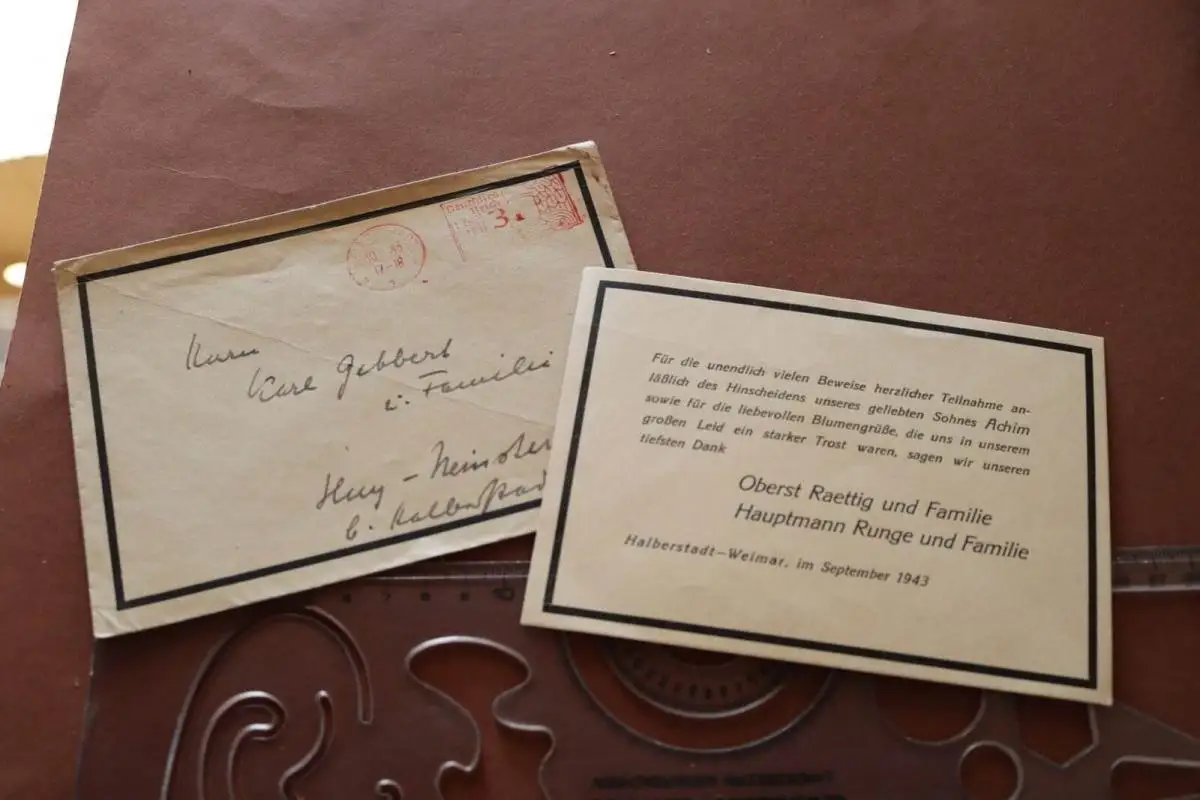 Deutsches
Reich
3
17-18
Karl Gebbert
u. Familie
Huy-Neinste
b. Halberstad
Für die unendlich vielen Beweise herzlicher Teilnahme an-
läßlich des Hinscheidens unseres geliebten Sohnes Achim
sowie für die liebevollen Blumengrüße, die uns in unserem
großen Leid ein starker Trost waren, sagen wir unseren
tiefsten Dank
Oberst Raettig und Familie
Hauptmann Runge und Familie
Halberstadt-Weimar, im September 1943